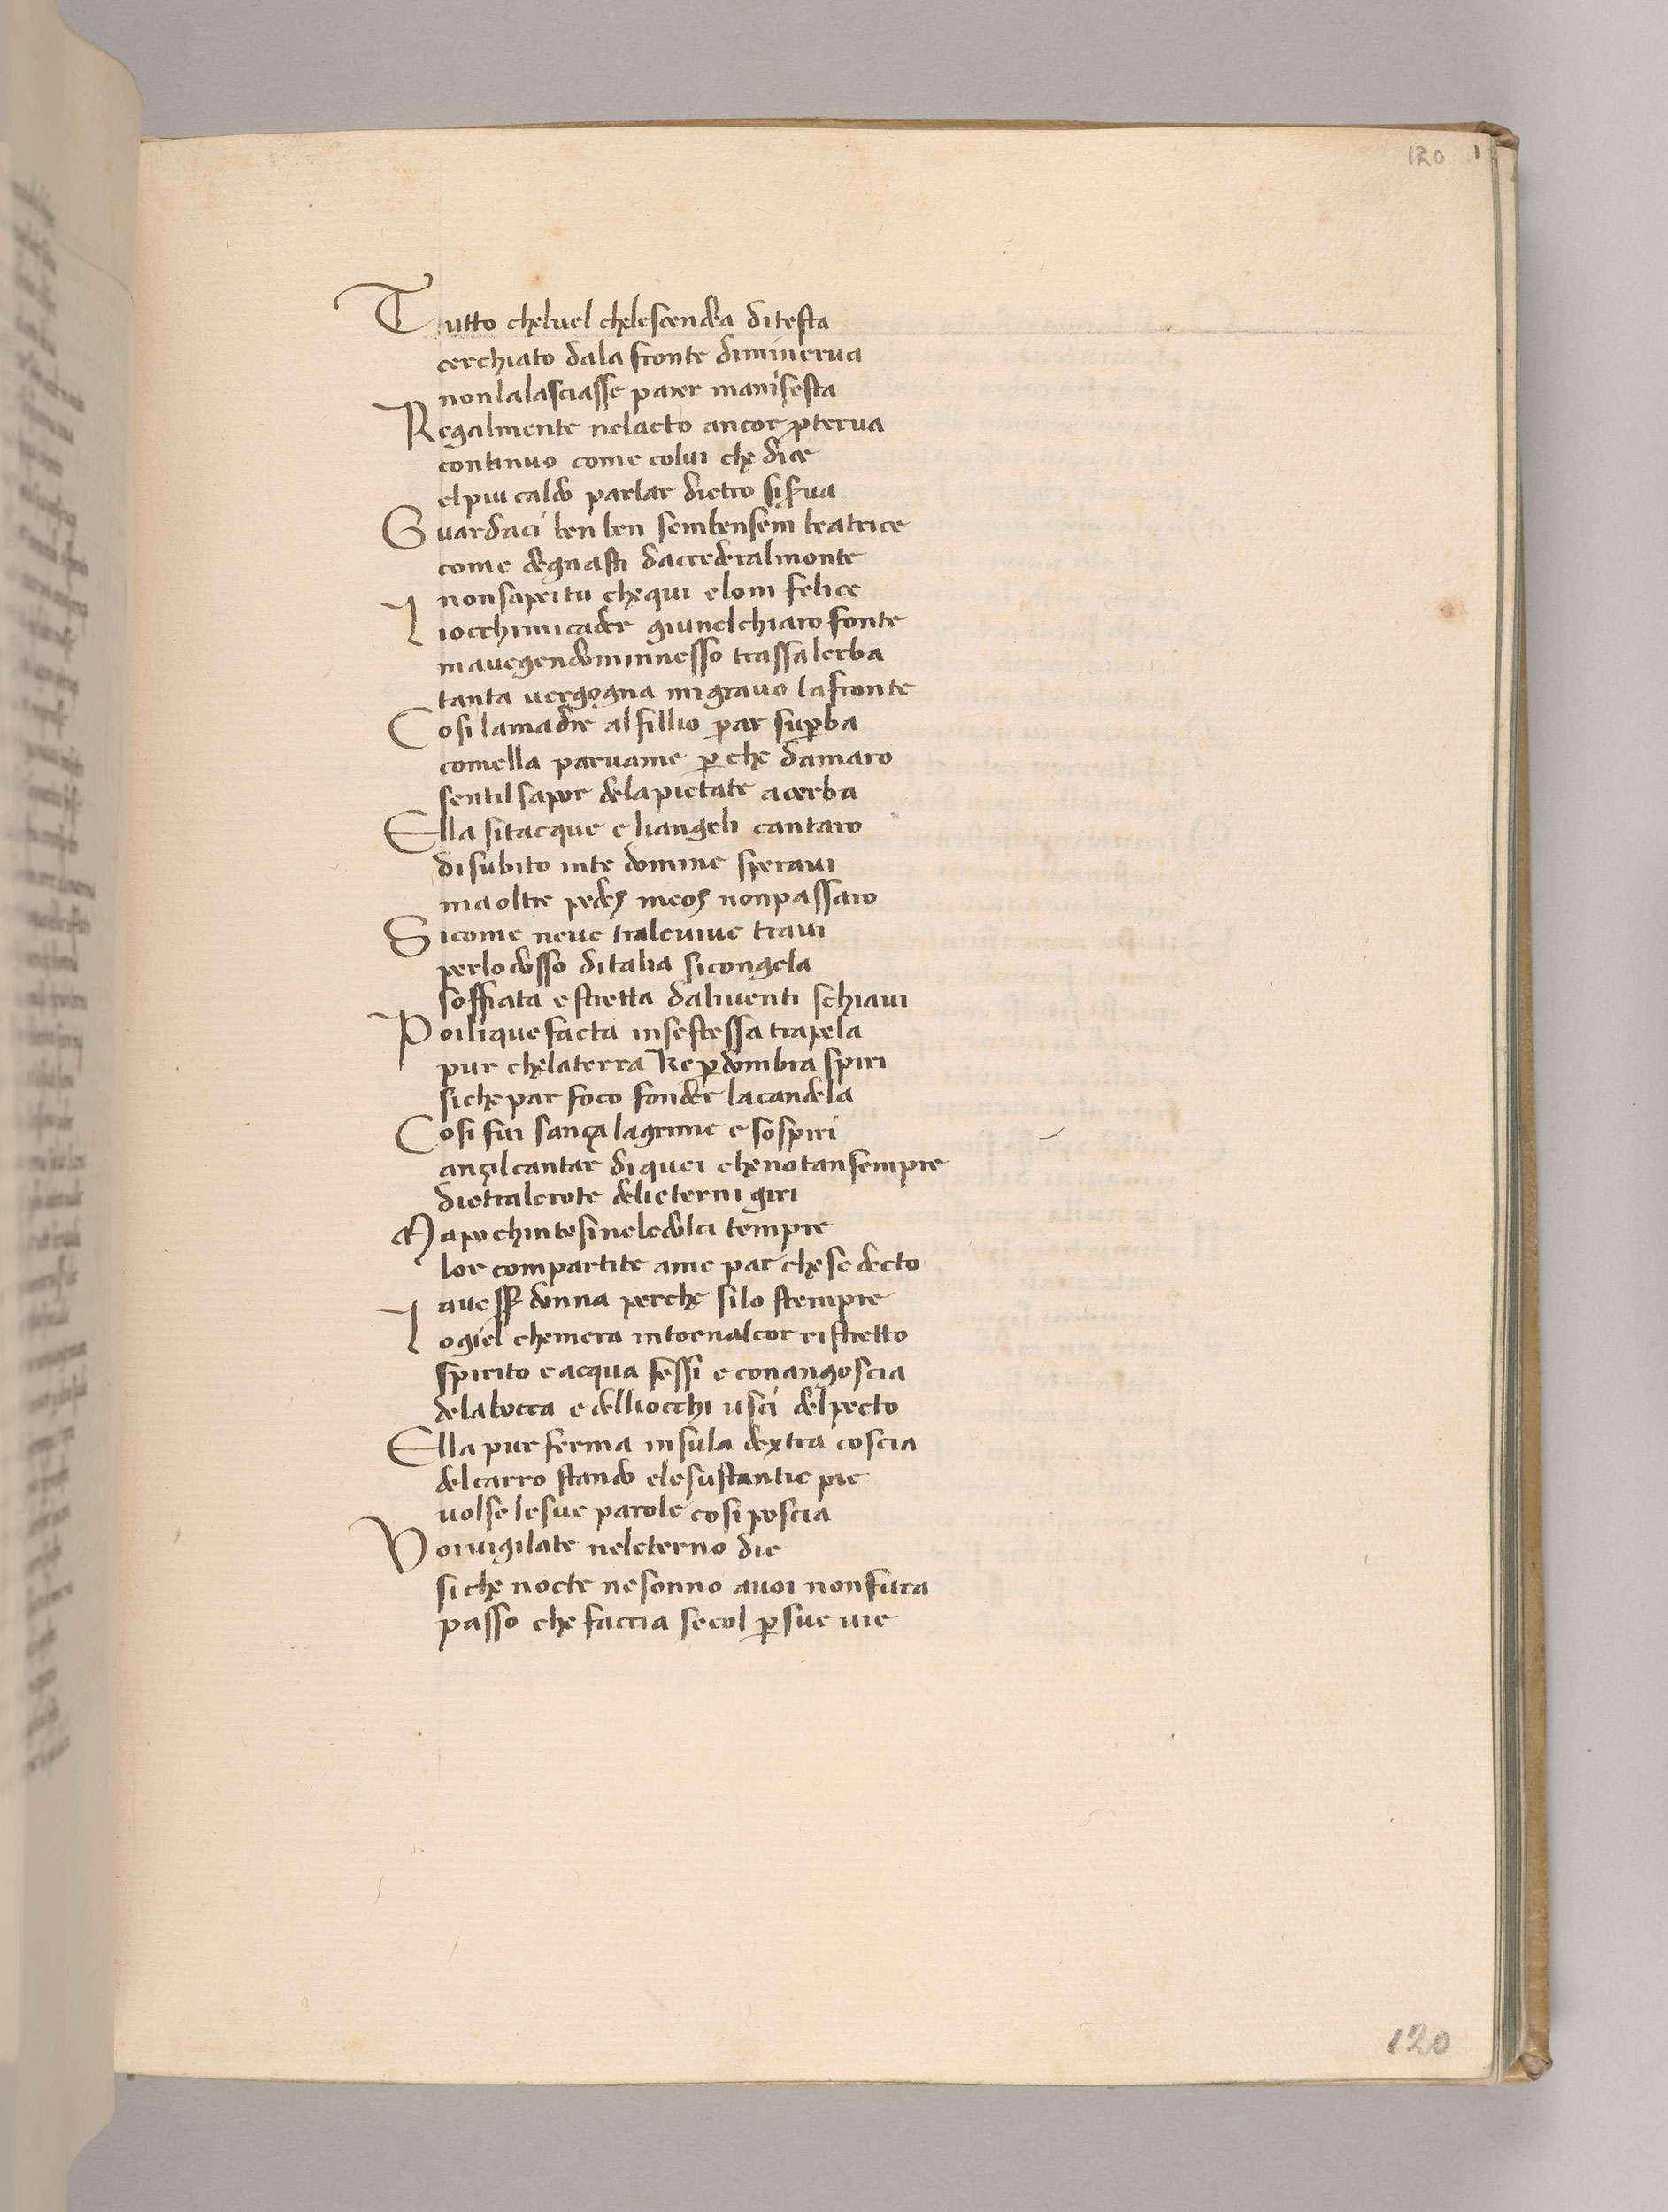 120
Tutto cheluel chelescendea ditesta
cerchiato dala fronte diminerua
nonlalasciasse parer manifesta
Regalmente nelacto ancor ꝓterua
continuo come colui che dice
elpiu caldo parlar dietro siserua
Guardaci ben ben senbensem beatrice
come degnasti daccederalmonte
nonsapei tu chequi elom felice
Liocchimicader giunelchiaro fonte
mauegendominnesso trassalerba
tanta uergogna migrauo lafronte
Cosi lamadre alfillio par suꝑba
comella paruame ꝑ che damaro
sentilsapor delapietate acerba
Ella sitacque e liangeli cantaro
disubito inte domine speraui
maoltre pedes meos nonpassaro
Sicome neue traleuiue traui
perlodosso ditalia sicongela
soffiata e stretta daliuenti schiaui
Poiliquefacta insestessa trapela
pur chelaterra ke ꝑdombra spiri
siche par foco fonder lacandela
Cosi fui sança lagrime e sospiri
ançilcantar di quei chenotansempre
dietralerote delieterni giri
Mapochintesineledolci tempre
lor compartite ame par chese decto
auesser donna perche silo stempre
Logiel chemera intornalcor ristretto
spirito e acqua fessi e conangoscia
delabocca e delliocchi usci delpecto
Ella pur ferma insula dextra coscia
delcarro stando elesustantie pie
uolse lesue parole cosi poscia
Voiuigilate neleterno die
siche nocte nesonno auoi nonfura
passo che faccia secol ꝑ sue uie
120